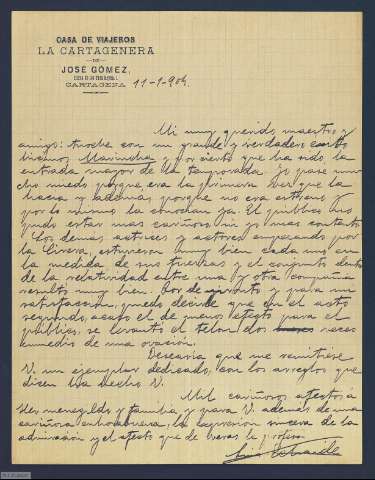 CASA DE VIAJEROS
LA CARTAGENERA
DE
JOSÉ GÓMEZ,
CARTAGENA
11-1-904.
Mi muy querido maestro y
amigo: Anoche con un grande y verdadero éxito
hicimos Mariucha y por cierto que ha sido la
entrada mayor de la temporada. Yo pasé mu-
cho miedo porque era la primera vez que la
hacía y además porque no era estreno y
por lo mismo la conocían ya. El público no
pudo estar más cariñoso ni yo más contento
Los demás actrices y actores empezando por
la Rivera, estuvieron muy bien cada cual en
la medida de sus fuerzas y el conjunto dentro
de la relatividad entre una y otra compañía
resultó muy bien. Por de pronto y para mi
satisfacción, puedo decirle que en el acto
segundo, acaso el de menos efecto para el
público, se levantó el telón dos veces
enmedio de una ovación.
Desearía que me remitiese
V. un ejemplar dedicado, con los arreglos que
dicen ha hecho V.
Mil cariñosos afectos á
Hermenegildo y familia, y para V. además de una
cariñosa enhorabuena, la expresión sincera de la
admiración y el afecto que de veras le profesa
Luis Echaide